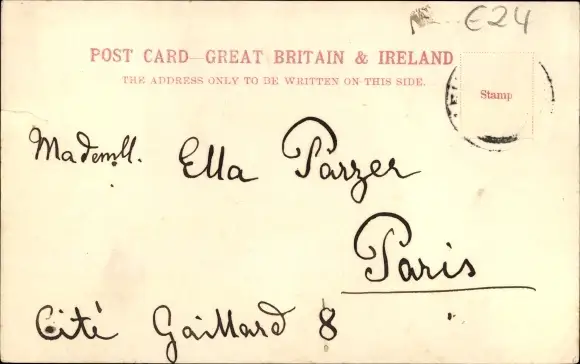 €24
POST CARD—GREAT BRITAIN & IRELAND
THE ADDRESS ONLY TO BE WRITTEN ON THIS SIDE.
Stamp
Mademll. Ella Parzer
Paris
Cité Gaillard 8